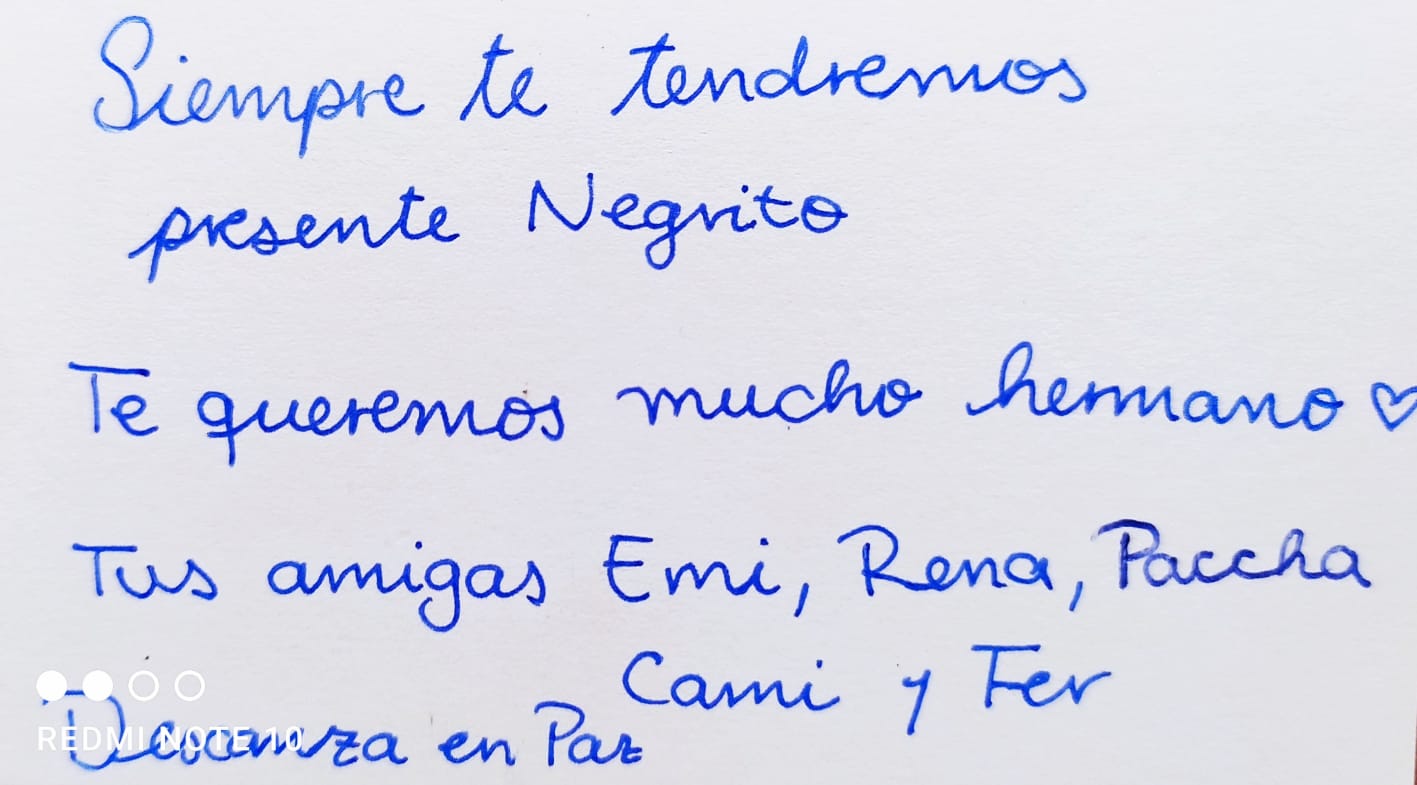 Siempre te tendremos
presente Negrito
Te queremos mucho hermano ♡
Tus amigas Emi, Rena, Paccha
Cami y Fer
Descanza en Paz
REDMI NOTE 10